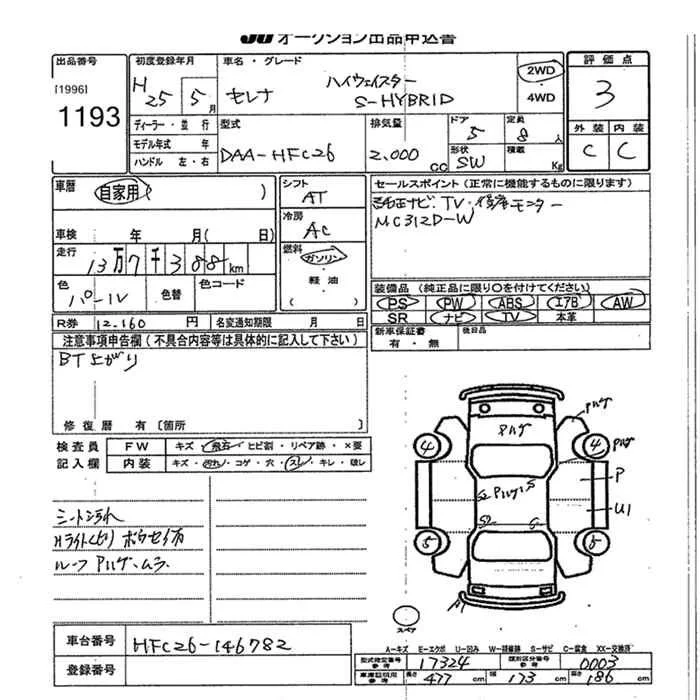 JU オークション出品申込書
出品番号
[1996]
1193
初度登録年月
H 25 5月
車名・グレード
セレナ ハイウェイスター
S-HYBRID
2WD
4WD
評価点
3
外装 内装
C C
ディーラー・並行
モデル年式 年
ハンドル 左・右
型式
DAA-HFC26
排気量
2.000 cc
ドア
5
形状
SW
定員
8人
積載
Kg
車暦
自家用 ( )
車検 年 月( 日)
走行
13万7千388km
色
パール
色替
色コード
シフト
AT
冷房
AC
燃料
ガソリン
軽油
( )
セールスポイント(正常に機能するものに限ります)
純正ナビ、TV・後席モニター
MC312D-W
装備品(純正品に限り○を付けてください)
PS PW ABS エアB AW
SR ナビ TV 本革
新車保証書
有・無
後日品
R券 12.160 円
名変通知期限 月 日
注意事項申告欄(不具合内容等は具体的に記入して下さい)
BT上がり
修復暦 有[箇所 ]
検査員
記入欄
FW キズ・飛石・ヒビ割・リペア跡・×要
内装 キズ・汚れ・コゲ・穴・スレ・キレ・破レ
シート汚れ
Hライトくもり
ルーフ Pハゲ、ムラ
Pハゲ
Pハゲ
Pハゲ
4
4
P
Pハゲ S
U1
5
5
A1
スペア
A-キズ E-エクボ U-凹み W-補修跡 S-サビ C-腐食 XX-交換済
車台番号 HFC26-146782
登録番号
型式指定番号
参考
17324
類別区分番号
参考
0003
車庫証明用
参考
長さ 477 cm 幅 173 cm 高さ 186 cm